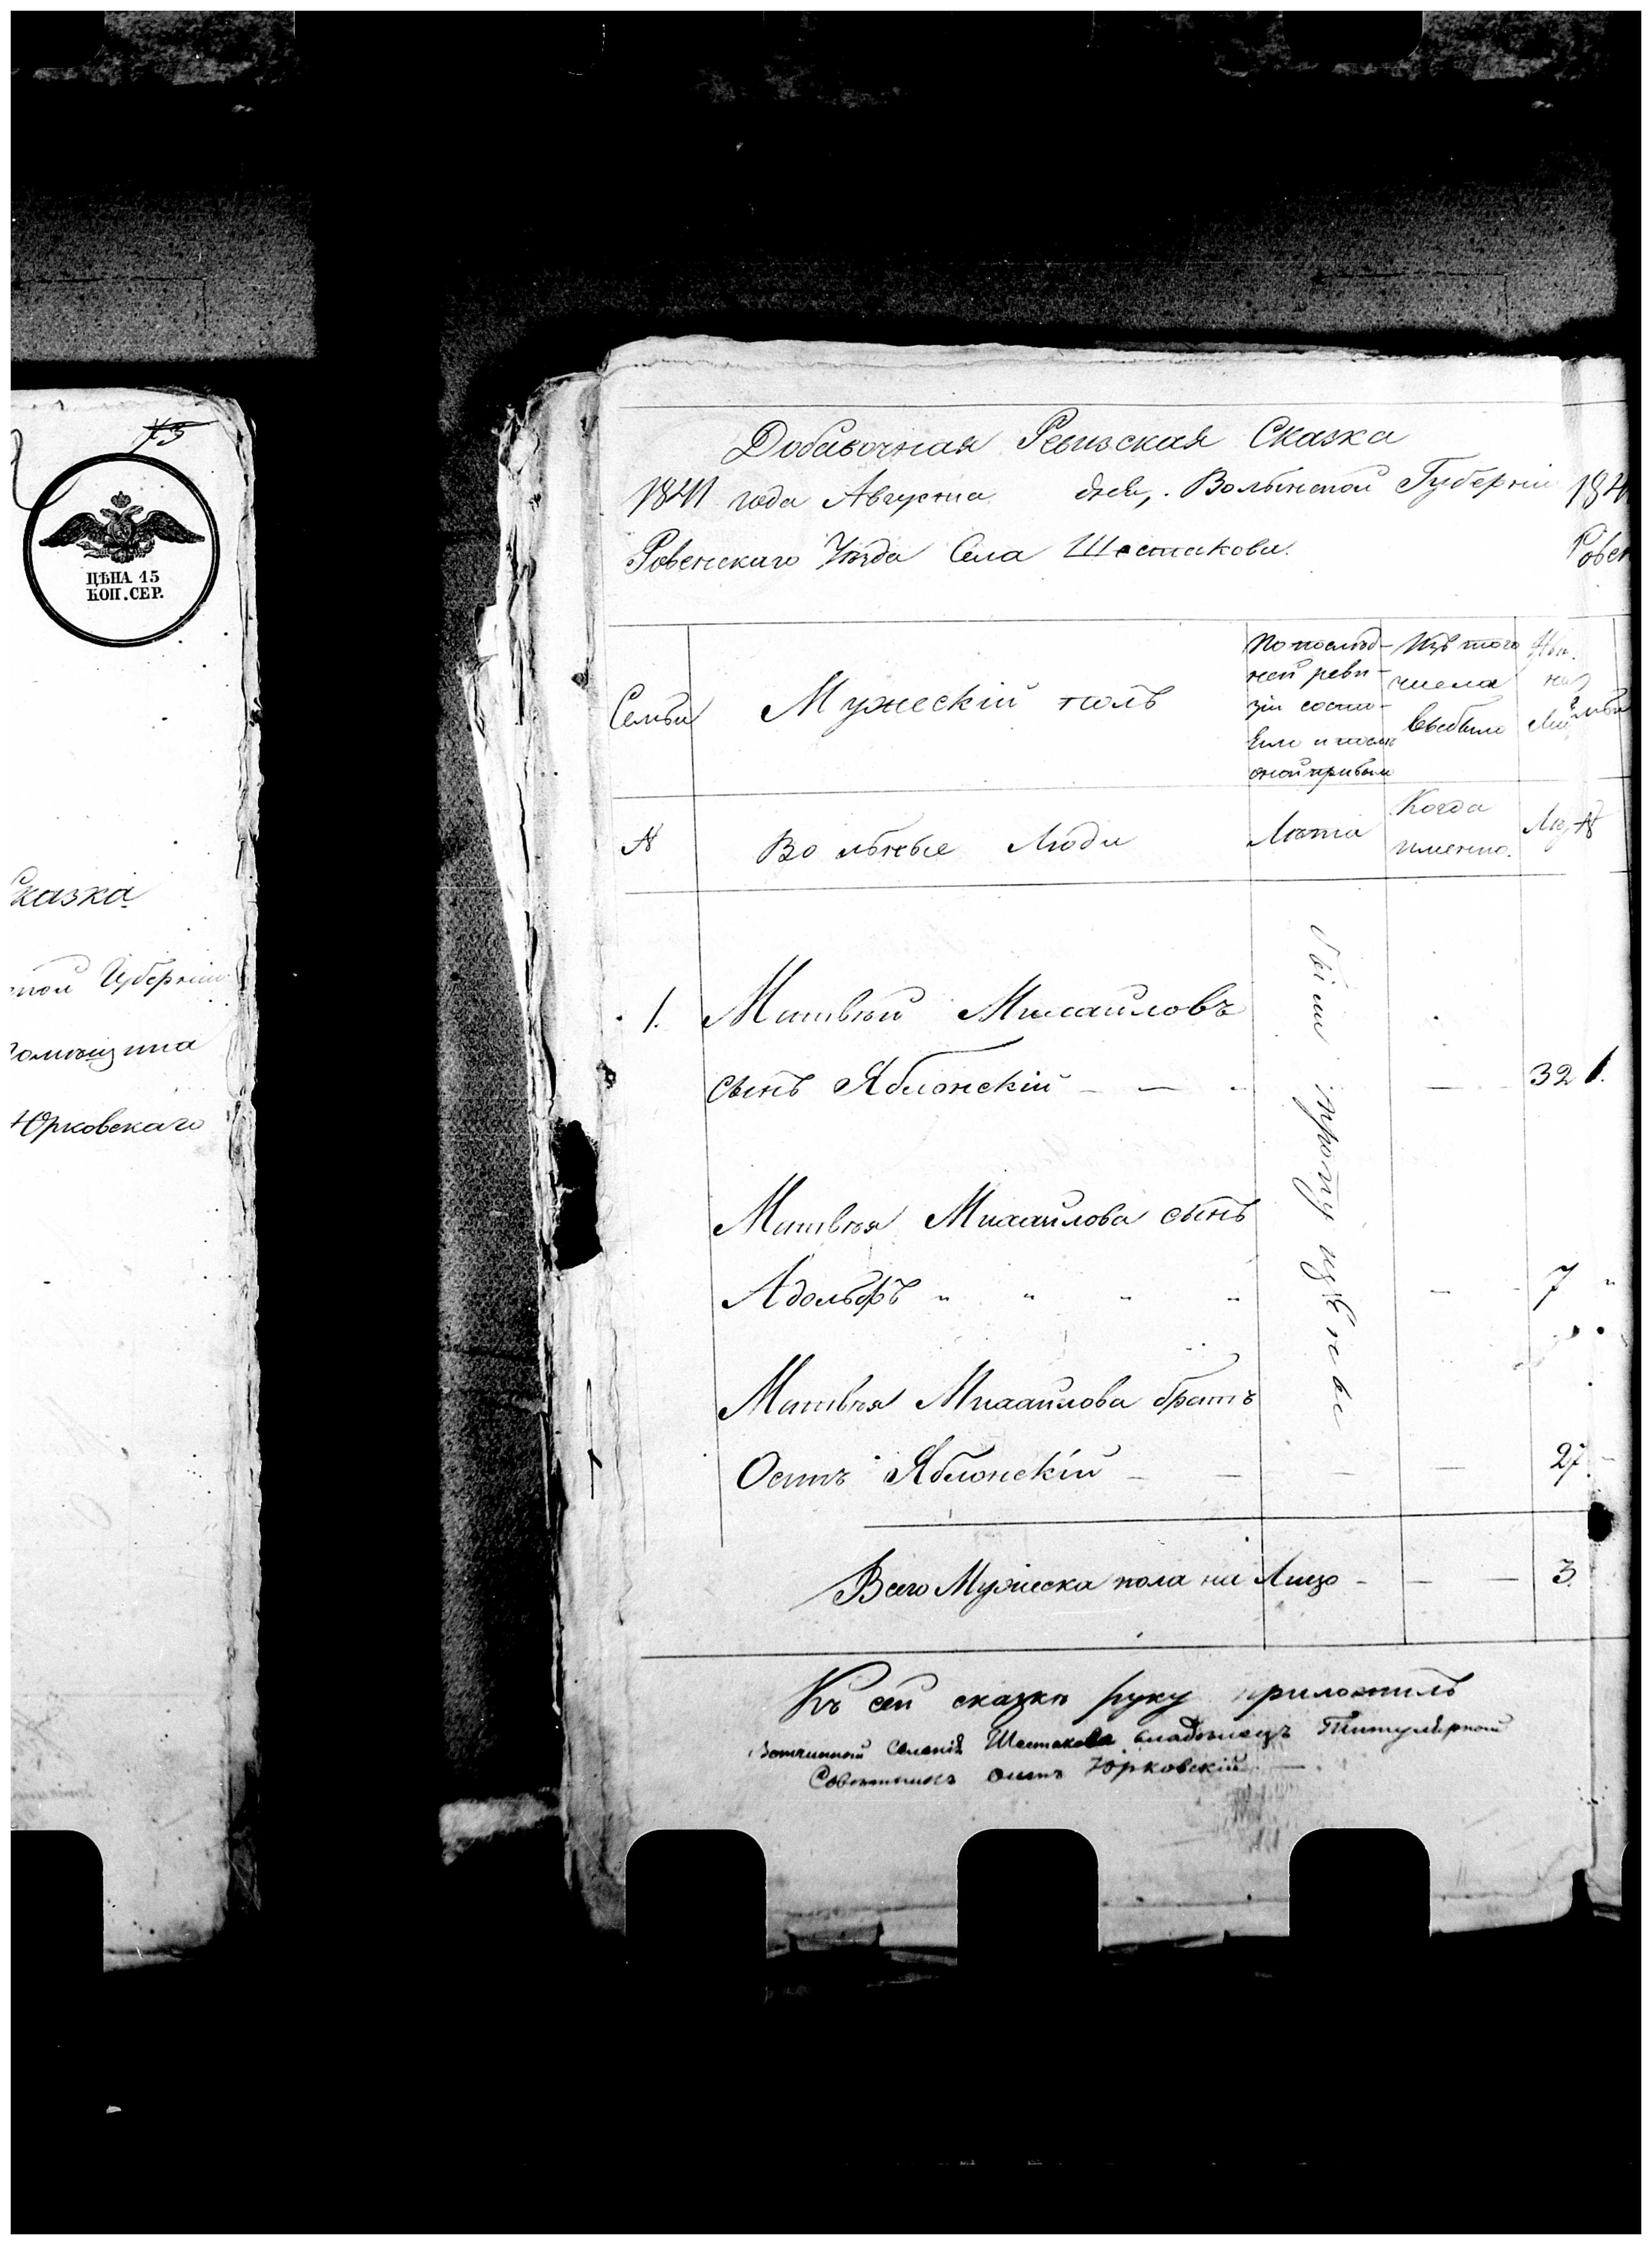 75
ЦѢНА 15
КОП. СЕР.
Сказка
Губерніи
Юрковскаго
Добавочная Ревизская Сказка
1841 года Августа дня, Волынской Губерніи
Ровенскаго Уѣзда Села Шестакова.
184
Ровен
Семьи
Мужескій полъ
По послѣд-
ней реви-
зіи состо-
яло и послѣ
оной прибыло
Изъ того
числа
выбыло
№
Вольные Люди
Лѣта
Когда
именно.
1. Матвѣй Михайловъ
сынъ Яблонскій - — - — - 32 1.
Матвѣя Михайлова сынъ
Адольфъ " " " " — - 7 "
Матвѣя Михайлова братъ
Осипъ Яблонскій — — — — 27
Всего Мужеска пола на Лицо - — — 3.
Къ сей сказкѣ руку приложилъ
Вотчинной Селенія Шестакова владѣлецъ Титулярной
Совѣтникъ Осипъ Юрковскій —